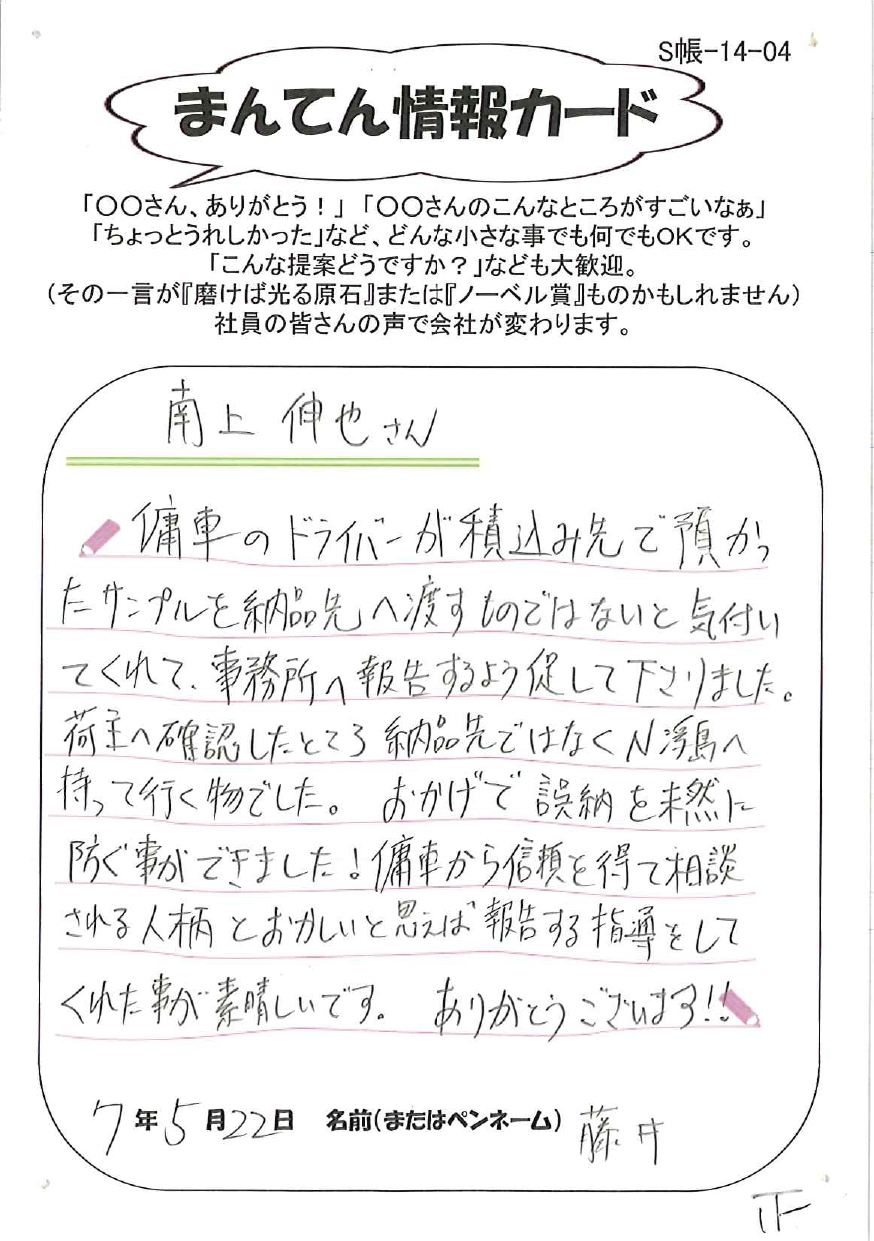 S帳-14-04
まんてん情報カード
「〇〇さん、ありがとう！」「〇〇さんのこんなところがすごいなぁ」
「ちょっとうれしかった」など、どんな小さな事でも何でもOKです。
「こんな提案どうですか？」なども大歓迎。
(その一言が『磨けば光る原石』または『ノーベル賞』ものかもしれません)
社員の皆さんの声で会社が変わります。
南上 伸也さん
傭車のドライバーが積込み先で預かっ
たサンプルを納品先へ渡すものではないと気付い
てくれて、事務所へ報告するよう促して下さりました。
荷主へ確認したところ納品先ではなくN浮島へ
持って行く物でした。 おかげで誤納を未然に
防ぐ事ができました！傭車から信頼を得て相談
される人柄とおかしいと思えば報告する指導をして
くれた事が素晴しいです。 ありがとうございます!!
7年5月22日 名前(またはペンネーム) 藤井